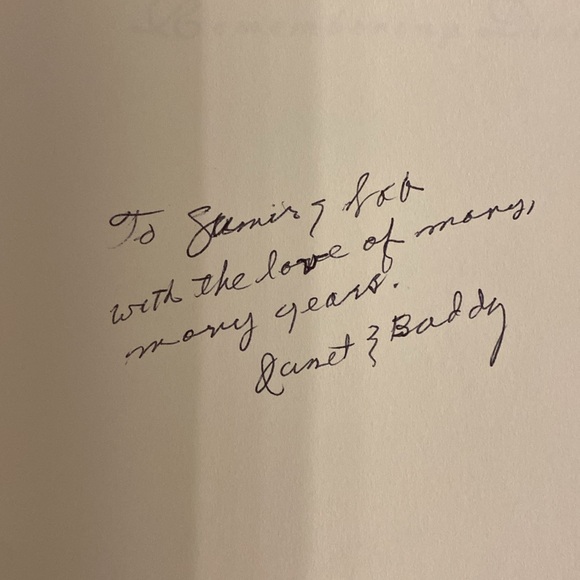 To Samir &
with the love of many,
many years.
Janet & Buddy